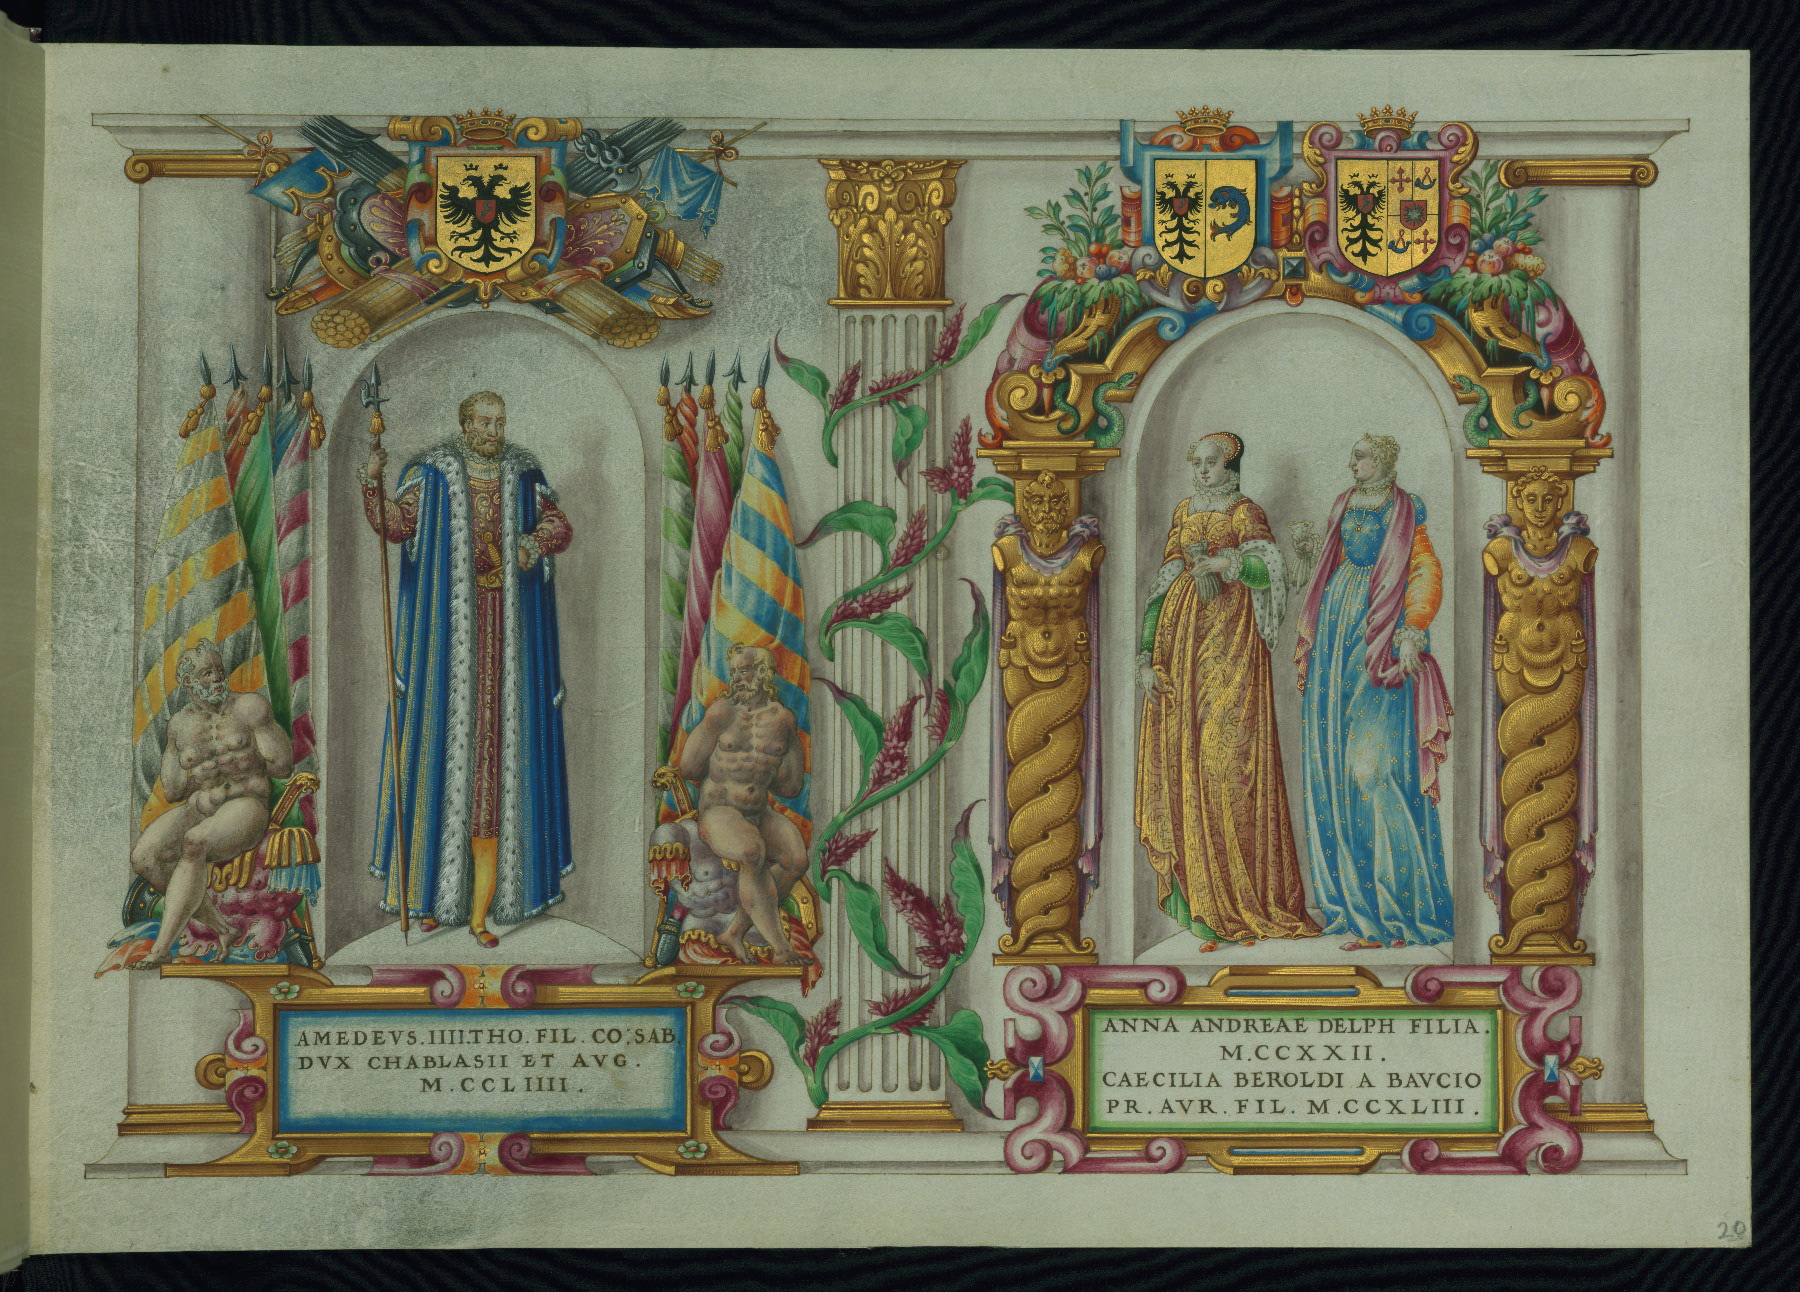 AMEDEVS.IIII.THO.FIL.CO;SAB.
DVX CHABLASII ET AVG.
M.CCLIIII.
ANNA ANDREAE DELPH FILIA.
M.CCXXII.
CAECILIA BEROLDI A BAVCIO
PR.AVR.FIL.M.CCXLIII.
20